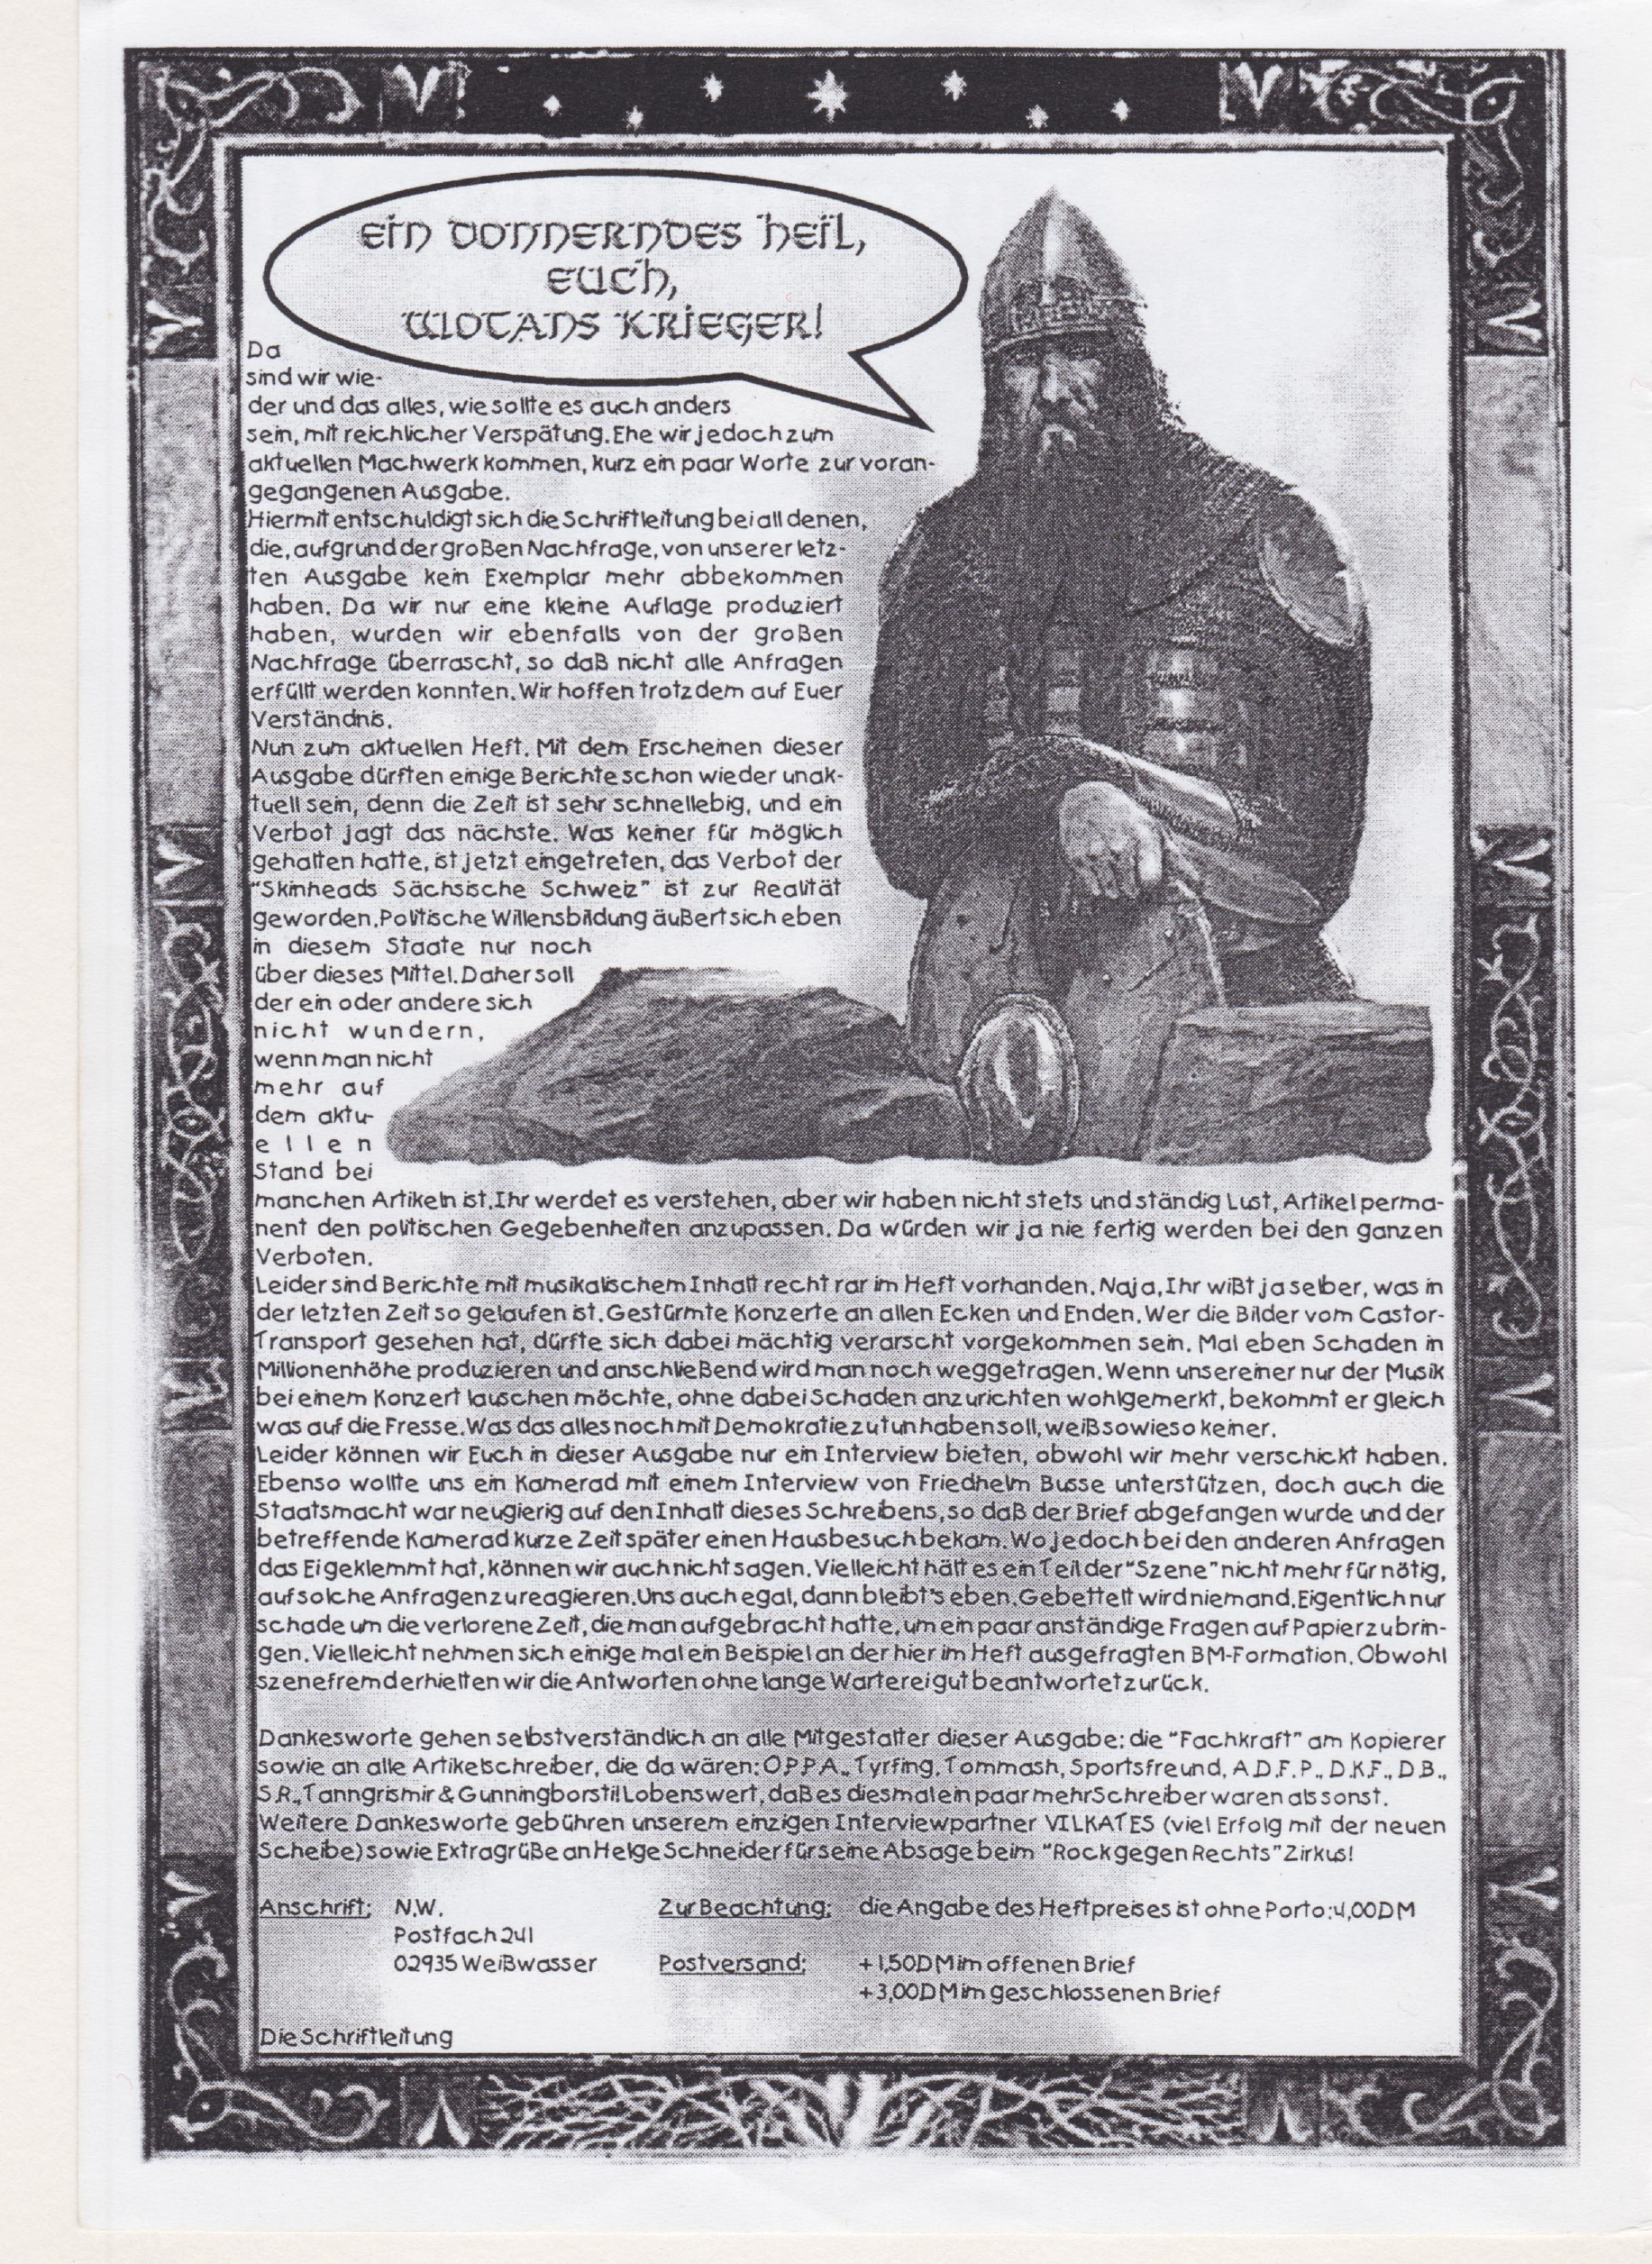 Ein donnerndes Heil,
Euch,
Wotans Krieger!
Da
sind wir wie-
der und das alles, wie sollte es auch anders
sein, mit reichlicher Verspätung. Ehe wir jedoch zum
aktuellen Machwerk kommen, kurz ein paar Worte zur voran-
gegangenen Ausgabe.
Hiermit entschuldigt sich die Schriftleitung bei all denen,
die, aufgrund der großen Nachfrage, von unserer letz-
ten Ausgabe kein Exemplar mehr abbekommen
haben. Da wir nur eine kleine Auflage produziert
haben, wurden wir ebenfalls von der großen
Nachfrage überrascht, so daß nicht alle Anfragen
erfüllt werden konnten. Wir hoffen trotzdem auf Euer
Verständnis.
Nun zum aktuellen Heft. Mit dem Erscheinen dieser
Ausgabe dürften einige Berichte schon wieder unak-
tuell sein, denn die Zeit ist sehr schnellebig, und ein
Verbot jagt das nächste. Was keiner für möglich
gehalten hatte, ist jetzt eingetreten, das Verbot der
"Skinheads Sächsische Schweiz" ist zur Realität
geworden. Politische Willensbildung äußert sich eben
in diesem Staate nur noch
über dieses Mittel. Daher soll
der ein oder andere sich
nicht wundern,
wenn man nicht
mehr auf
dem aktu-
ellen
Stand bei
manchen Artikeln ist. Ihr werdet es verstehen, aber wir haben nicht stets und ständig Lust, Artikel perma-
nent den politischen Gegebenheiten anzupassen. Da würden wir ja nie fertig werden bei den ganzen
Verboten.
Leider sind Berichte mit musikalischem Inhalt recht rar im Heft vorhanden. Naja, Ihr wißt ja selber, was in
der letzten Zeit so gelaufen ist. Gestürmte Konzerte an allen Ecken und Enden. Wer die Bilder vom Castor-
Transport gesehen hat, dürfte sich dabei mächtig verarscht vorgekommen sein. Mal eben Schaden in
Millionenhöhe produzieren und anschließend wird man noch weggetragen. Wenn unsereiner nur der Musik
bei einem Konzert lauschen möchte, ohne dabei Schaden anzurichten wohlgemerkt, bekommt er gleich
was auf die Fresse. Was das alles noch mit Demokratie zu tun haben soll, weiß sowieso keiner.
Leider können wir Euch in dieser Ausgabe nur ein Interview bieten, obwohl wir mehr verschickt haben.
Ebenso wollte uns ein Kamerad mit einem Interview von Friedhelm Busse unterstützen, doch auch die
Staatsmacht war neugierig auf den Inhalt dieses Schreibens, so daß der Brief abgefangen wurde und der
betreffende Kamerad kurze Zeit später einen Hausbesuch bekam. Wo jedoch bei den anderen Anfragen
das Ei geklemmt hat, können wir auch nicht sagen. Vielleicht hält es ein Teil der "Szene" nicht mehr für nötig,
auf solche Anfragen zu reagieren. Uns auch egal, dann bleibt's eben. Gebettelt wird niemand. Eigentlich nur
schade um die verlorene Zeit, die man aufgebracht hatte, um ein paar anständige Fragen auf Papier zu brin-
gen. Vielleicht nehmen sich einige mal ein Beispiel an der hier im Heft ausgefragten BM-Formation. Obwohl
szenefremd erhielten wir die Antworten ohne lange Warterei gut beantwortet zurück.
Dankesworte gehen selbstverständlich an alle Mitgestalter dieser Ausgabe: die "Fachkraft" am Kopierer
sowie an alle Artikelschreiber, die da wären: O.P.P.A., Tyrfing, Tommash, Sportsfreund, A.D.F.P., D.K.F., D.B.,
S.R., Tanngrismir & Gunningborsti! Lobenswert, daß es diesmal ein paar mehr Schreiber waren als sonst.
Weitere Dankesworte gebühren unserem einzigen Interviewpartner VILKATES (viel Erfolg mit der neuen
Scheibe) sowie Extragrüße an Helge Schneider für seine Absage beim "Rock gegen Rechts" Zirkus!
Anschrift: N.W. Zur Beachtung: die Angabe des Heftpreises ist ohne Porto: 4,00DM
Postfach 241
02935 Weißwasser Postversand: + 1,50DM im offenen Brief
+ 3,00DM im geschlossenen Brief
Die Schriftleitung